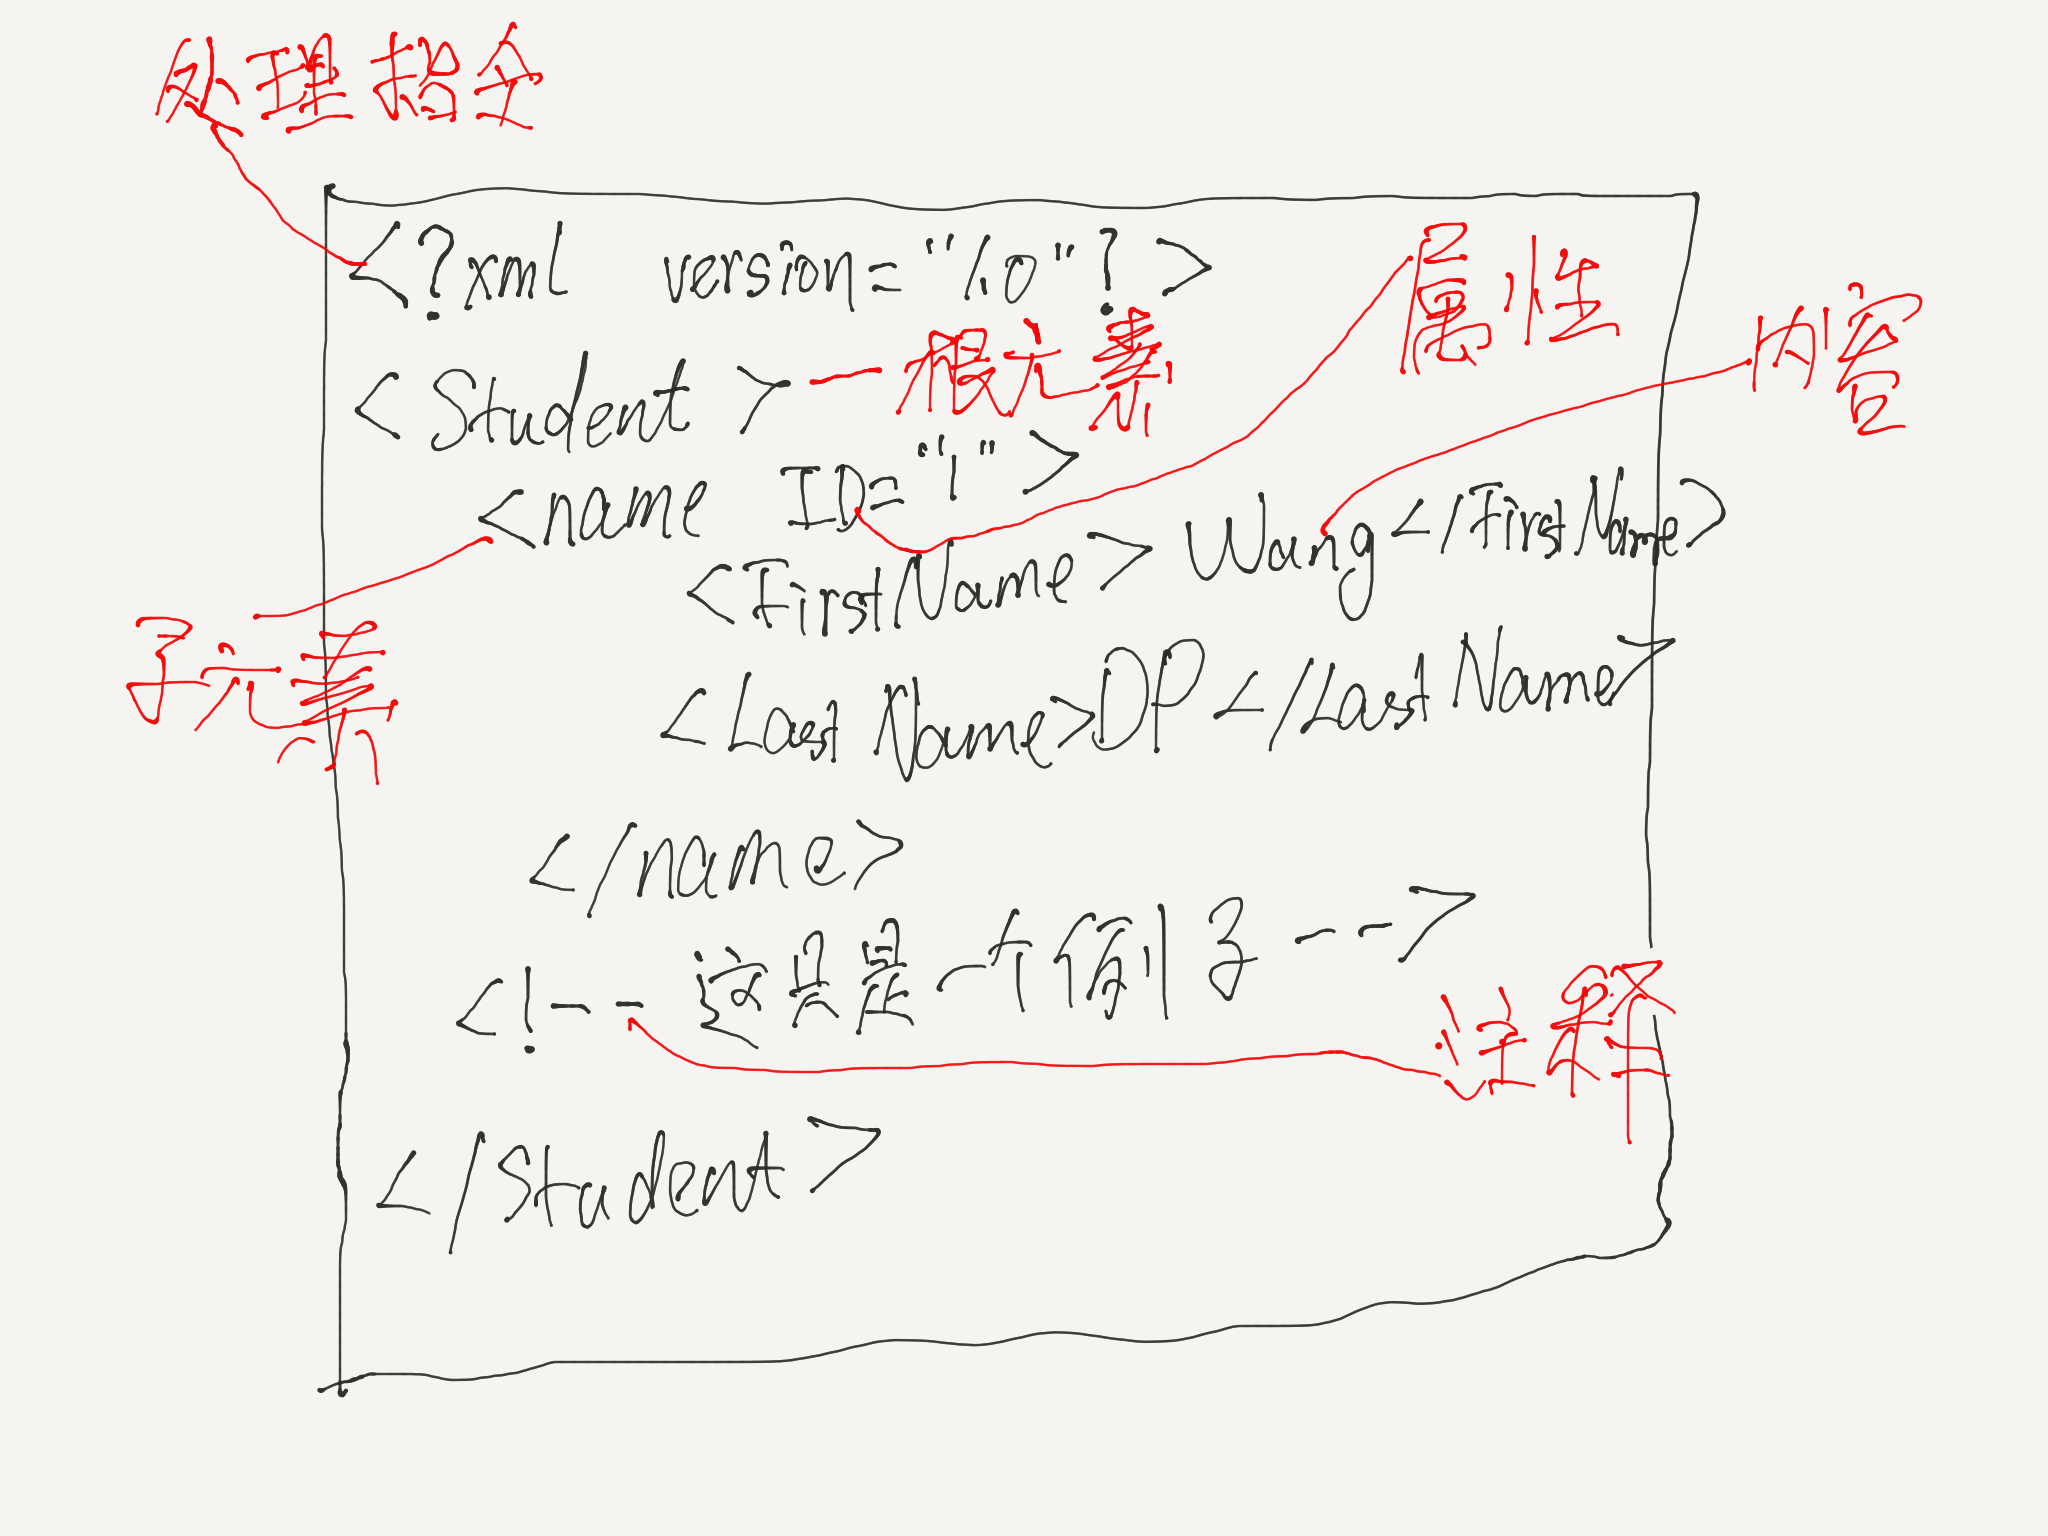 处理指令
<?xml version="1.0"?>
属性
内容
<Student>
根元素
<name ID="1">
<FirstName>Wang</FirstName>
子元素
<LastName>DP</LastName>
</name>
<!-- 这只是一个例子 -->
注释
</Student>